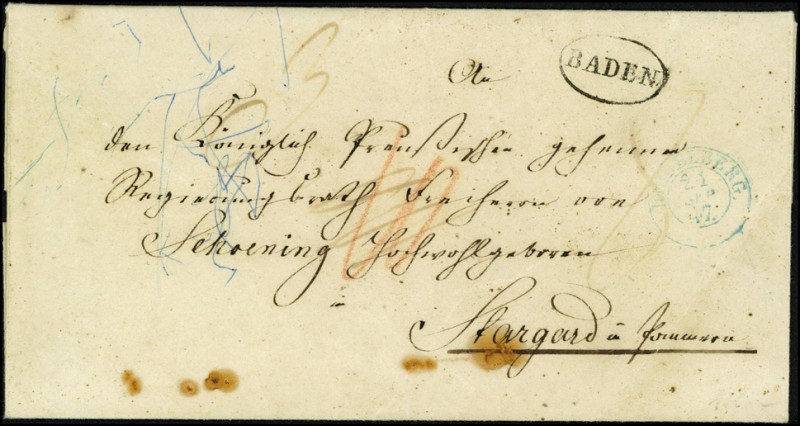 An
BADEN
den Königlich Preußischen geheimen
Regierungsrath Freiherrn von
Schoening Hochwohlgeboren
in
Stargard in Pommern